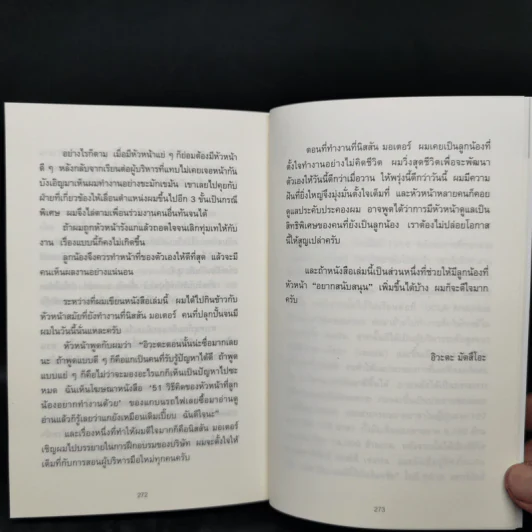 อย่างไรก็ตาม เมื่อมีหัวหน้าแย่ ๆ ก็ย่อมต้องมีหัวหน้า
ดี ๆ หลังกลับจากเรียนต่อผู้บริหารที่แทบไม่เคยเจอหน้ากัน
บังเอิญมาเห็นผมทำงานอย่างขะมักเขม้น เขาเลยไปคุยกับ
ฝ่ายที่เกี่ยวข้องให้เลื่อนตำแหน่งผมขึ้นไปอีก 3 ชั้นเป็นกรณี
พิเศษ ผมจึงไล่ตามเพื่อนร่วมงานคนอื่นทันจนได้
ถ้าผมถูกหัวหน้ารังแกแล้วถอดใจจนเลิกทุ่มเทให้กับ
งาน เรื่องแบบนี้ก็คงไม่เกิดขึ้น
ลูกน้องจึงควรทำหน้าที่ของตัวเองให้ดีที่สุด แล้วจะมี
คนเห็นผลงานอย่างแน่นอน
ระหว่างที่ผมเขียนหนังสือเล่มนี้ ผมได้ไปกินข้าวกับ
หัวหน้าสมัยที่ยังทำงานที่นิสสัน มอเตอร์ คนที่ปลุกปั้นจนมี
ผมในวันนี้นั่นแหละครับ
หัวหน้าพูดกับผมว่า "อิวะตะตอนนั้นน่ะซื่อมากเลย
นะ ถ้าพูดแบบดี ๆ ก็คือแกเป็นคนที่รับรู้ปัญหาได้ดี ถ้าพูด
แบบแย่ ๆ ก็คือไม่ว่าจะมองอะไรแกก็เห็นเป็นปัญหาไปซะ
หมด ฉันเห็นโฆษณาหนังสือ '51 วิธีคิดของหัวหน้าที่ลูก
น้องอยากทำงานด้วย' ของแกบนรถไฟเลยซื้อมาอ่านดู
อ่านแล้วก็รู้เลยว่าแกยังเหมือนเดิมเปี๊ยบ ฉันดีใจนะ"
และเรื่องหนึ่งที่ทำให้ผมดีใจมากก็คือนิสสัน มอเตอร์
เชิญผมไปบรรยายในการฝึกอบรมของบริษัท ผมจะตั้งใจให้
เต็มที่กับการสอนผู้บริหารมือใหม่ทุกคนครับ
272
ตอนที่ทำงานที่นิสสัน มอเตอร์ ผมเคยเป็นลูกน้องที่
ตั้งใจทำงานอย่างไม่คิดชีวิต ผมวิ่งสุดชีวิตเพื่อจะพัฒนา
ตัวเองให้วันนี้ดีกว่าเมื่อวาน ให้พรุ่งนี้ดีกว่าวันนี้ ผมมีความ
ฝันที่ยิ่งใหญ่จึงมุ่งมั่นตั้งใจเต็มที่ และหัวหน้าหลายคนก็คอย
ดูแลประคับประคองผม อาจพูดได้ว่าการมีหัวหน้าดูแลเป็น
สิทธิพิเศษของคนที่ยังเป็นลูกน้อง เราต้องไม่ปล่อยโอกาส
นี้ให้สูญเปล่าครับ
และถ้าหนังสือเล่มนี้เป็นส่วนหนึ่งที่ช่วยให้มีลูกน้องที่
หัวหน้า "อยากสนับสนุน" เพิ่มขึ้นได้บ้าง ผมก็จะดีใจมาก
ครับ
อิวะตะ มัตสึโอะ
273